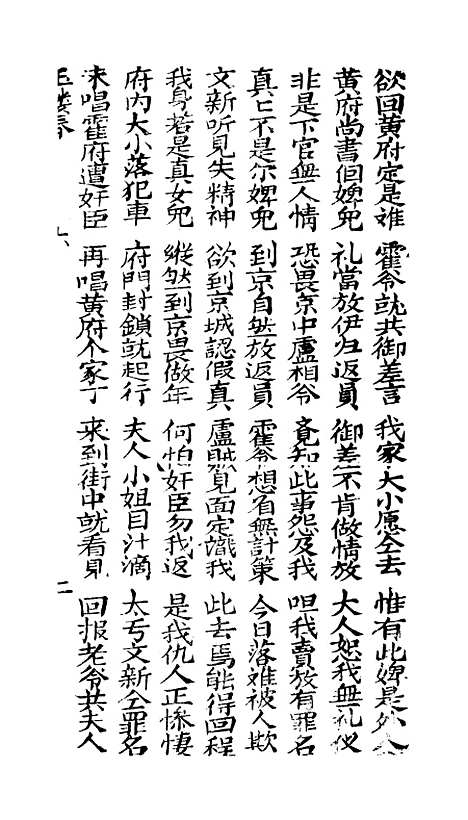 欲回黄府定是谁 霍爷就共御差言 我家大小愿仝去 惟有此婢是外人
黄府尚書佃婢兒 礼當放伊归返員 御差不肯做情放 大人恕我無礼仪
非是下官無人情 恐畏京中盧相爷 竟知此事怨及我 呾我賣放有罪名
真正不是尔婢兒 到京自然放返員 霍爷想着無計策 今日落难被人欺
文新听見失精神 欲到京城認假真 盧賊見面定識我 此去焉能得回程
我身若是真女兒 縱然到京畏做年 何怕奸臣勿我返 是我仇人正慘悽
府內大小落犯車 府門封鎖就起行 夫人小姐目汁滴 太亏文新仝罪名
来唱霍府遭奸臣 再唱黄府个家丁 来到街中就看見 回报老爷共夫人
玉楼春 二